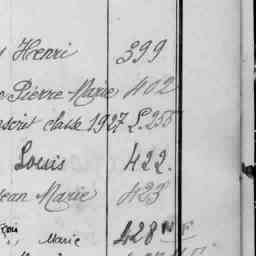 Henri 399
Pierre Marie 402
classe 1927 L.255
Louis 422.
Jean Marie 423
Marie 428